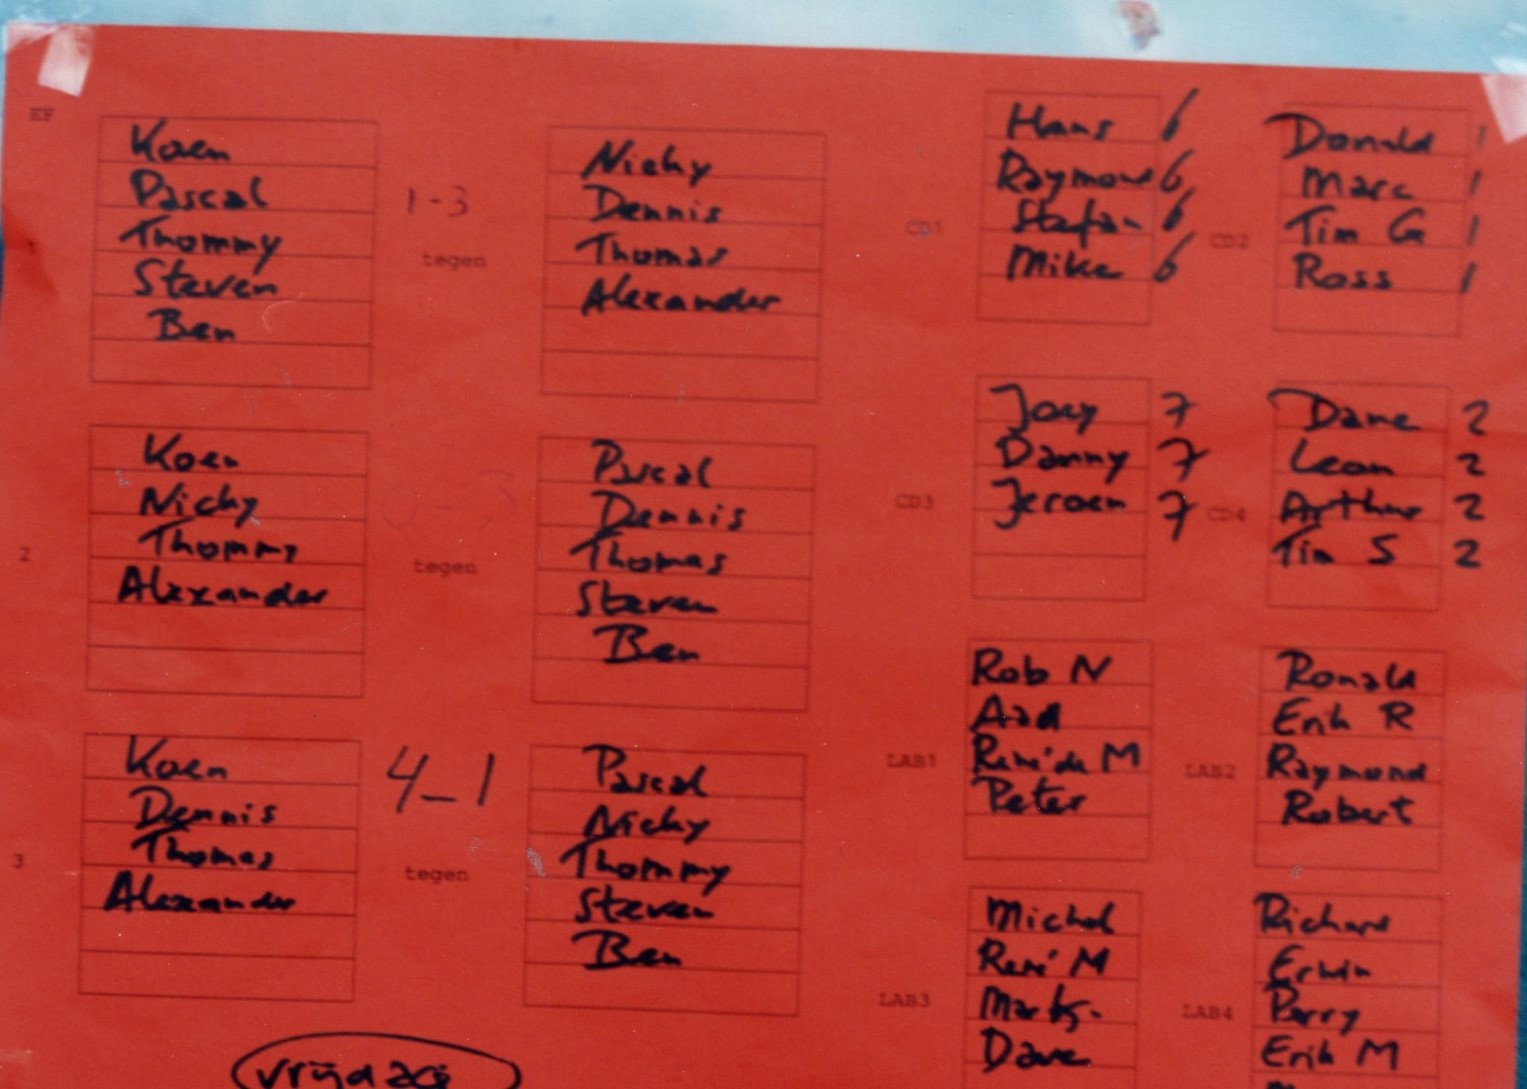 EF
Koen
Pascal
Thommy
Steven
Ben
1-3
tegen
Nicky
Dennis
Thomas
Alexander
2
Koen
Nicky
Thommy
Alexander
0-3
tegen
Pascal
Dennis
Thomas
Steven
Ben
3
Koen
Dennis
Thomas
Alexander
4-1
tegen
Pascal
Nicky
Thommy
Steven
Ben
vrijdag
CD1
Hans 6
Raymond 6
Stefan 6
Mike 6
CD2
Donald 1
Marc 1
Tim G 1
Ross 1
CD3
Joey 7
Danny 7
Jeroen 7
CD4
Dane 2
Leon 2
Arthur 2
Tim S 2
LAB1
Rob N
Aad
René de M
Peter
LAB2
Ronald
Erik R
Raymond
Robert
LAB3
Michel
René M
Dave
LAB4
Richard
Erwin
Perry
Erik M